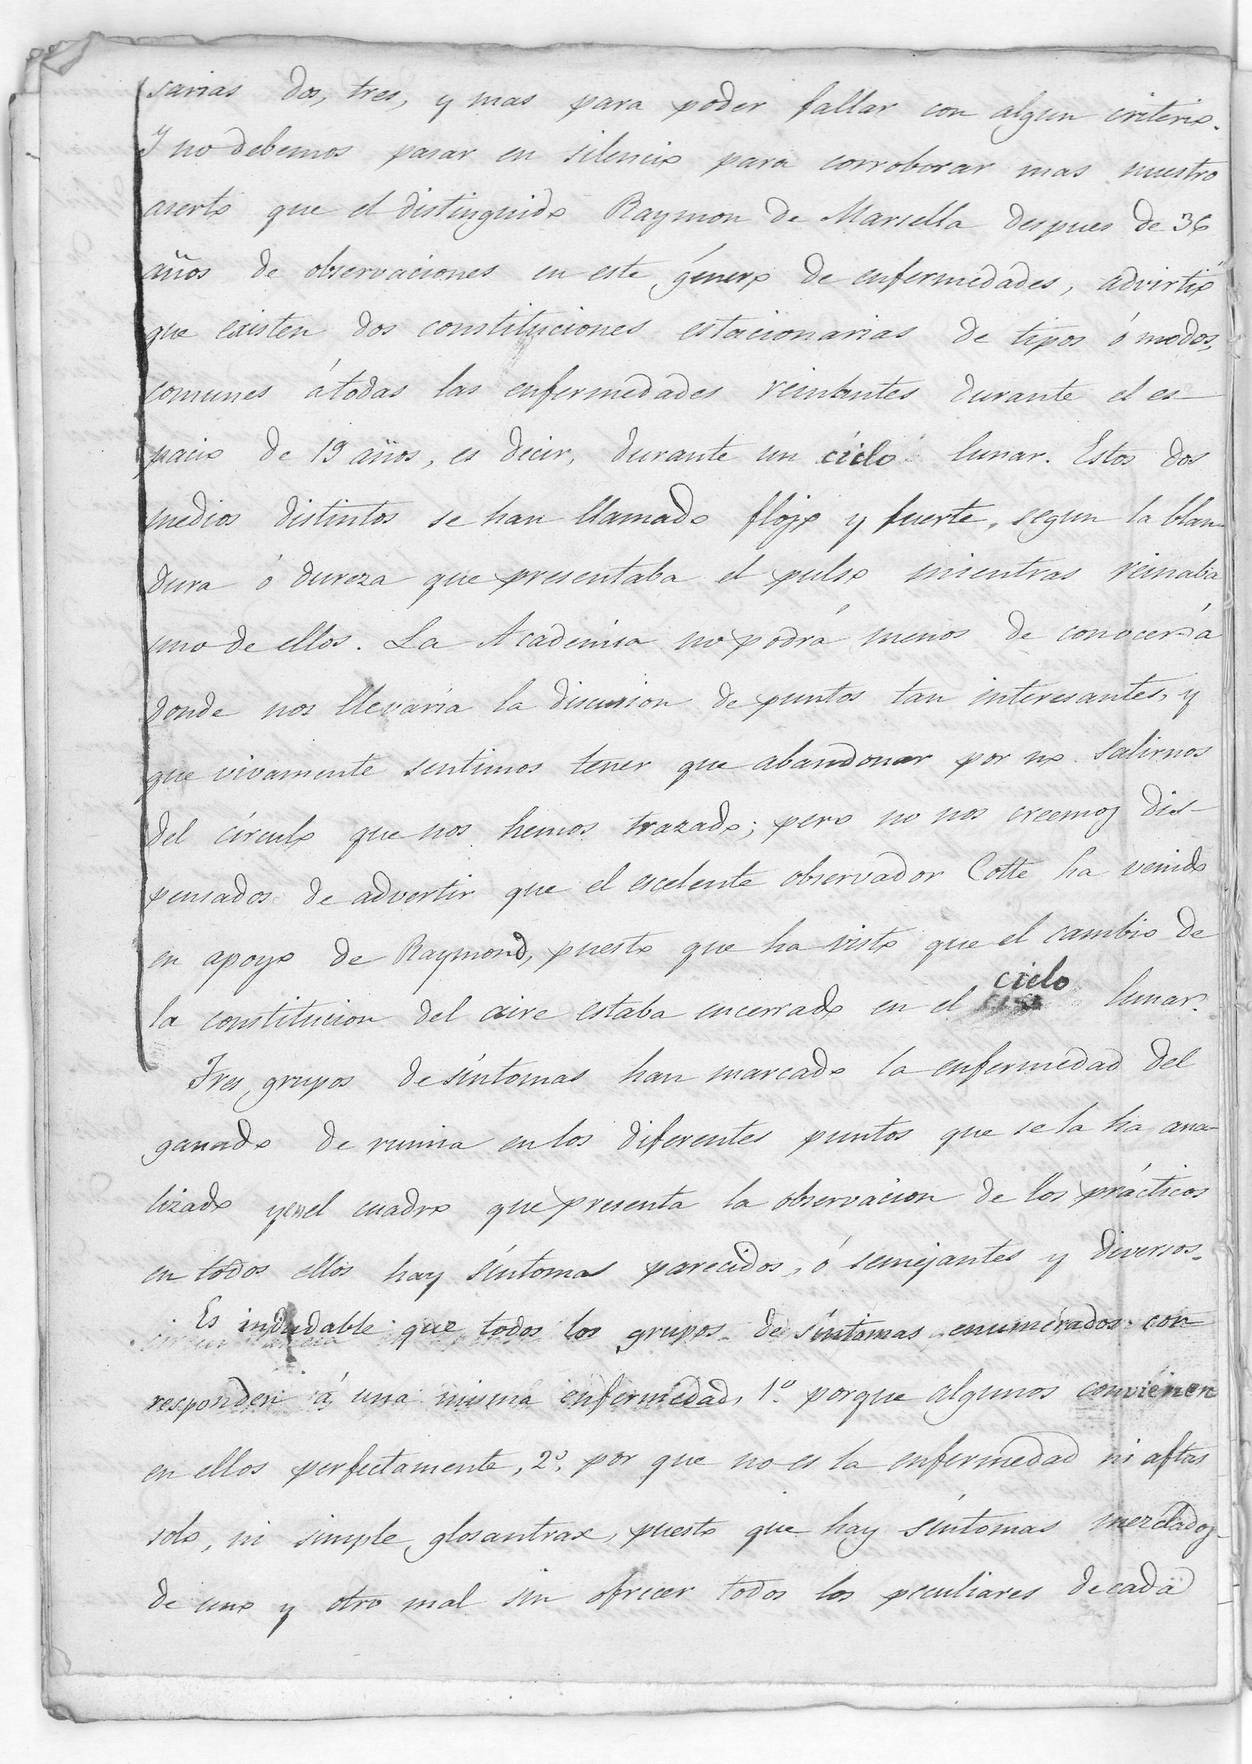 sarias dos, tres, y mas para poder fallar con algun criterio.
Y no debemos pasar en silencio para corroborar mas nuestro
aserto que el distinguido Raymon de Marsella despues de 36
años de observaciones en este género de enfermedades, advirtió
que existen dos constituciones estacionarias de tipos ó modos,
comunes á todas las enfermedades reinantes durante el es-
pacio de 19 años, es decir, durante un ciclo lunar. Estos dos
medios distintos se han llamado flojo y fuerte, segun la blan-
dura ó dureza que presentaba el pulso mientras reinaba
uno de ellos. La Academia no podrá menos de conocer á
donde nos llevaria la discusion de puntos tan interesantes, y
que vivamente sentimos tener que abandonar por no salirnos
del círculo que nos hemos trazado; pero no nos creemos dis-
pensados de advertir que el escelente observador Cotte ha venido
en apoyo de Raymond, puesto que ha visto que el cambio de
la constitucion del aire estaba encerrado en el ciclo lunar.
Tres grupos de síntomas han marcado la enfermedad del
ganado de rumia en los diferentes puntos que se la ha ana-
lizado y en el cuadro que presenta la observacion de los prácticos
en todos ellos hay síntomas parecidos, ó semejantes y diversos.
Es indudable que todos los grupos de síntomas enumerados con
responden á una misma enfermedad, 1º. porque algunos convienen
en ellos perfectamente, 2º. por que no es la enfermedad ni aftas
solo, ni simple glosantrax, puesto que hay síntomas mezclados
de uno y otro mal sin ofrecer todos los peculiares de cada